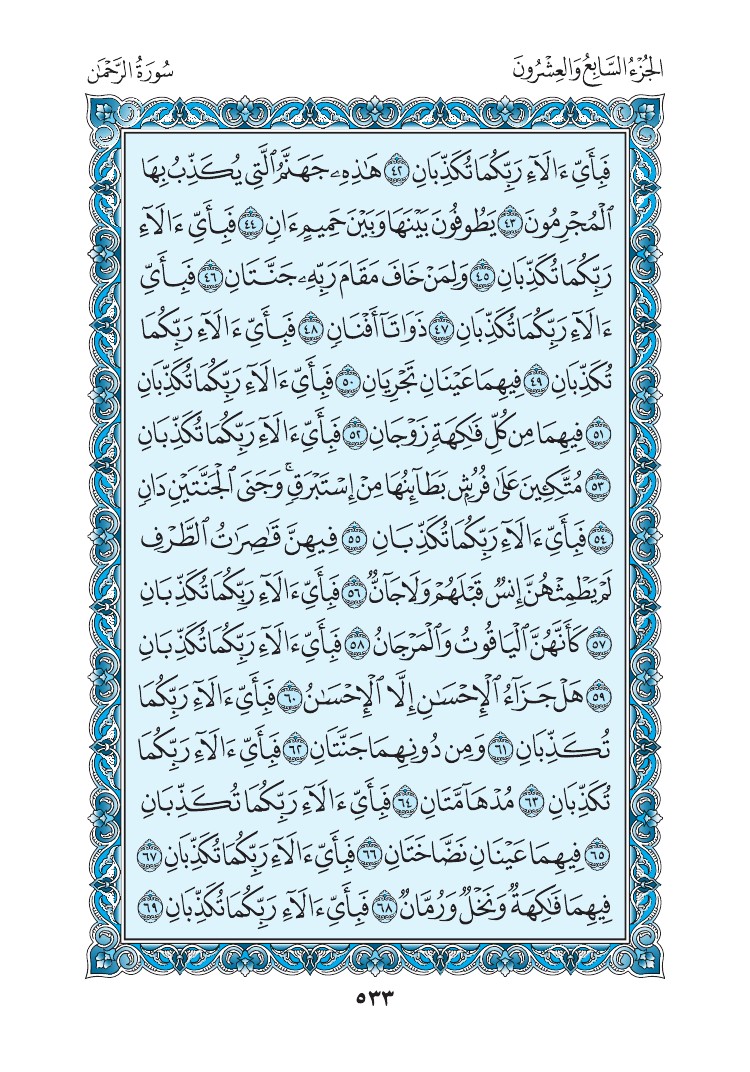 الجُزْءُ السَّابِعُ وَالعِشْرُونَ
سُورَةُ الرَّحْمَٰن
فَبِأَيِّ ءَالَآءِ رَبِّكُمَا تُكَذِّبَانِ ٤٢ هَٰذِهِۦ جَهَنَّمُ ٱلَّتِي يُكَذِّبُ بِهَا
ٱلْمُجْرِمُونَ ٤٣ يَطُوفُونَ بَيْنَهَا وَبَيْنَ حَمِيمٍ ءَانٍ ٤٤ فَبِأَيِّ ءَالَآءِ
رَبِّكُمَا تُكَذِّبَانِ ٤٥ وَلِمَنْ خَافَ مَقَامَ رَبِّهِۦ جَنَّتَانِ ٤٦ فَبِأَيِّ
ءَالَآءِ رَبِّكُمَا تُكَذِّبَانِ ٤٧ ذَوَاتَآ أَفْنَانٍ ٤٨ فَبِأَيِّ ءَالَآءِ رَبِّكُمَا
تُكَذِّبَانِ ٤٩ فِيهِمَا عَيْنَانِ تَجْرِيَانِ ٥٠ فَبِأَيِّ ءَالَآءِ رَبِّكُمَا تُكَذِّبَانِ
٥١ فِيهِمَا مِن كُلِّ فَٰكِهَةٍ زَوْجَانِ ٥٢ فَبِأَيِّ ءَالَآءِ رَبِّكُمَا تُكَذِّبَانِ
٥٣ مُتَّكِـِٔينَ عَلَىٰ فُرُشٍۭ بَطَآئِنُهَا مِنْ إِسْتَبْرَقٍ ۚ وَجَنَى ٱلْجَنَّتَيْنِ دَانٍ
٥٤ فَبِأَيِّ ءَالَآءِ رَبِّكُمَا تُكَذِّبَانِ ٥٥ فِيهِنَّ قَٰصِرَٰتُ ٱلطَّرْفِ
لَمْ يَطْمِثْهُنَّ إِنسٌ قَبْلَهُمْ وَلَا جَآنٌّ ٥٦ فَبِأَيِّ ءَالَآءِ رَبِّكُمَا تُكَذِّبَانِ
٥٧ كَأَنَّهُنَّ ٱلْيَاقُوتُ وَٱلْمَرْجَانُ ٥٨ فَبِأَيِّ ءَالَآءِ رَبِّكُمَا تُكَذِّبَانِ
٥٩ هَلْ جَزَآءُ ٱلْإِحْسَٰنِ إِلَّا ٱلْإِحْسَٰنُ ٦٠ فَبِأَيِّ ءَالَآءِ رَبِّكُمَا
تُكَذِّبَانِ ٦١ وَمِن دُونِهِمَا جَنَّتَانِ ٦٢ فَبِأَيِّ ءَالَآءِ رَبِّكُمَا
تُكَذِّبَانِ ٦٣ مُدْهَآمَّتَانِ ٦٤ فَبِأَيِّ ءَالَآءِ رَبِّكُمَا تُكَذِّبَانِ
٦٥ فِيهِمَا عَيْنَانِ نَضَّاخَتَانِ ٦٦ فَبِأَيِّ ءَالَآءِ رَبِّكُمَا تُكَذِّبَانِ ٦٧
فِيهِمَا فَٰكِهَةٌ وَنَخْلٌ وَرُمَّانٌ ٦٨ فَبِأَيِّ ءَالَآءِ رَبِّكُمَا تُكَذِّبَانِ ٦٩
٥٣٣